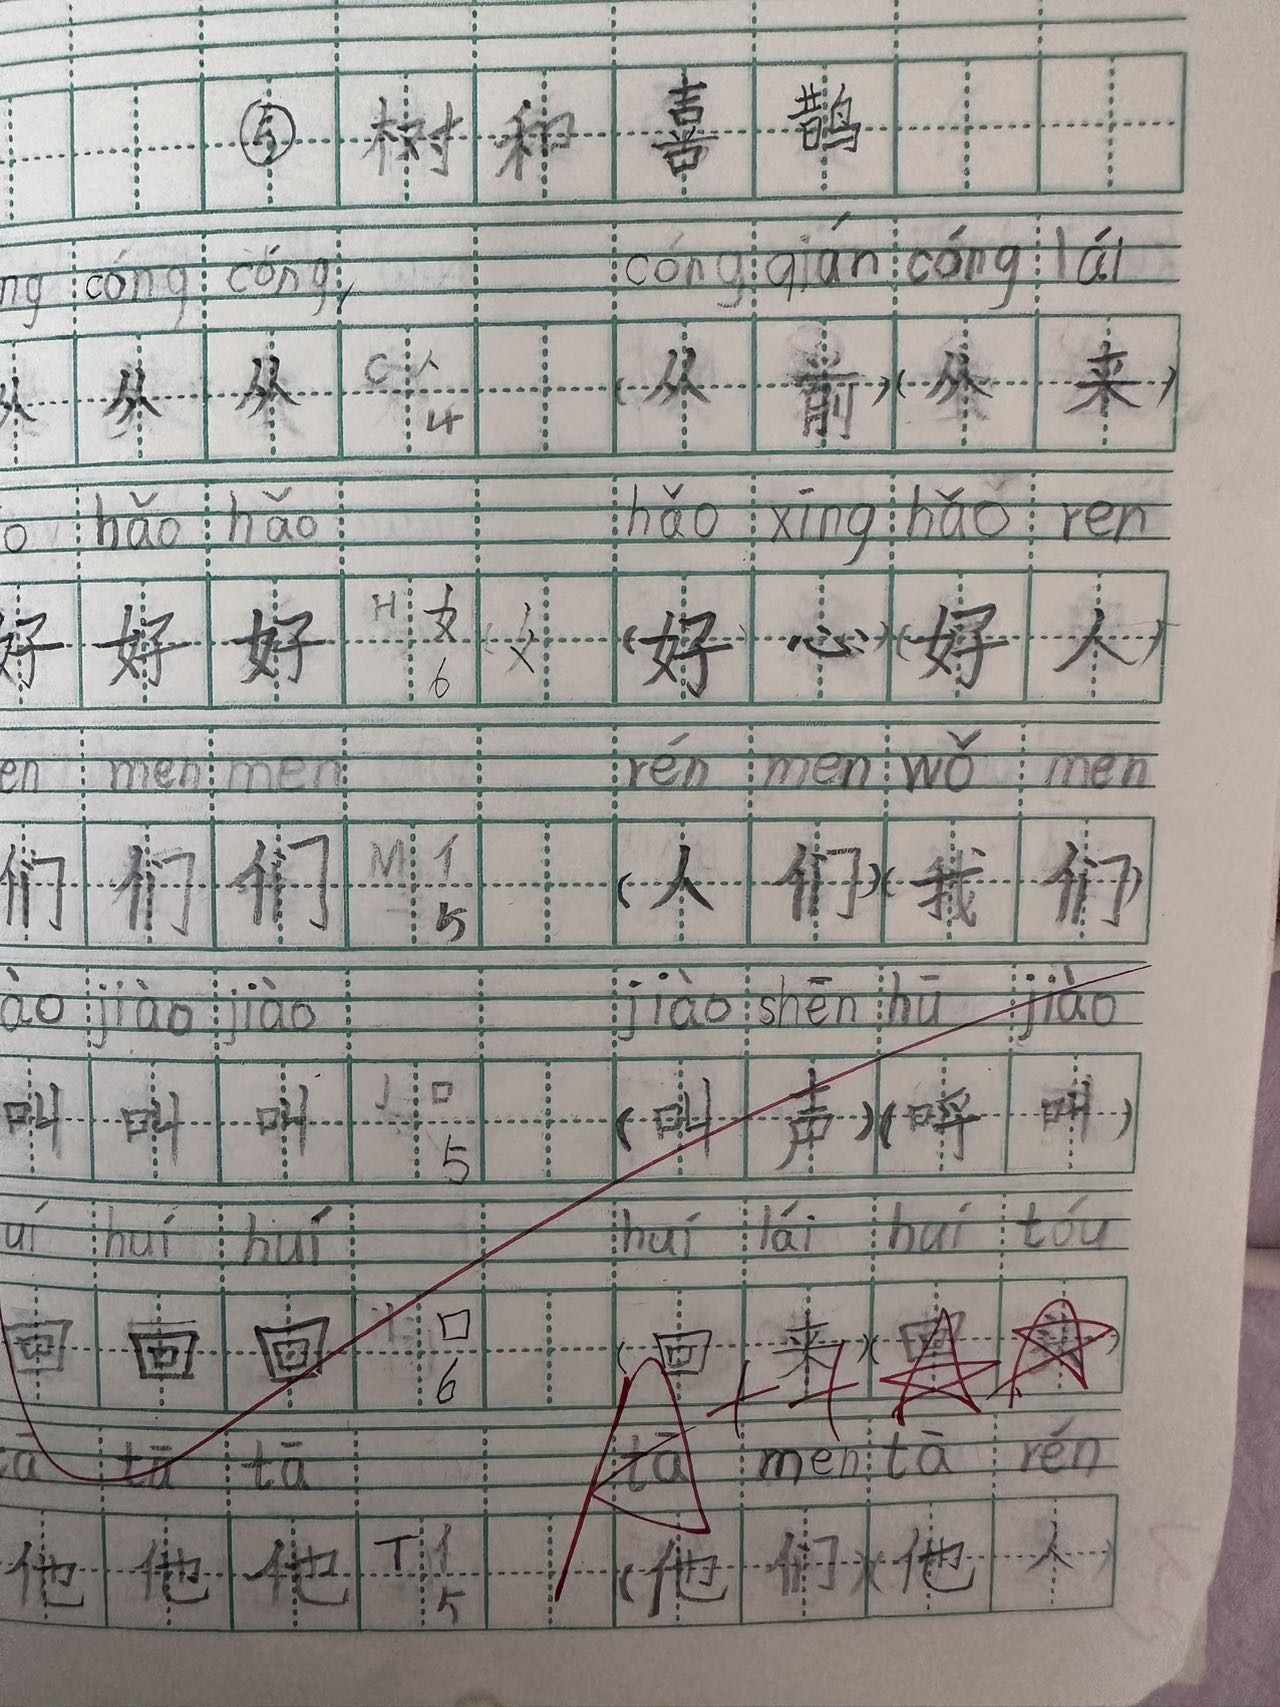 ⑤树和喜鹊
ng cóng cóng, cóng qián cóng lái
从 从 从 C 人 4 (从前)(从来)
o hǎo hǎo hǎo xīng hǎo ren
好 好 好 H 女 6 (女 (好心)(好人)
en men men rén men wǒ men
们 们 们 M 亻 5 (人们)(我们)
ào jiào jiào jiào shēn hū jiào
叫 叫 叫 J 口 5 (叫声)(呼叫)
uí huí huí huí lái huí tóu
回 回 回 H 囗 6 (回来)(回头)
A++☆☆
tā tā tā tā men tà rén
他 他 他 T 亻 5 (他们)(他人)